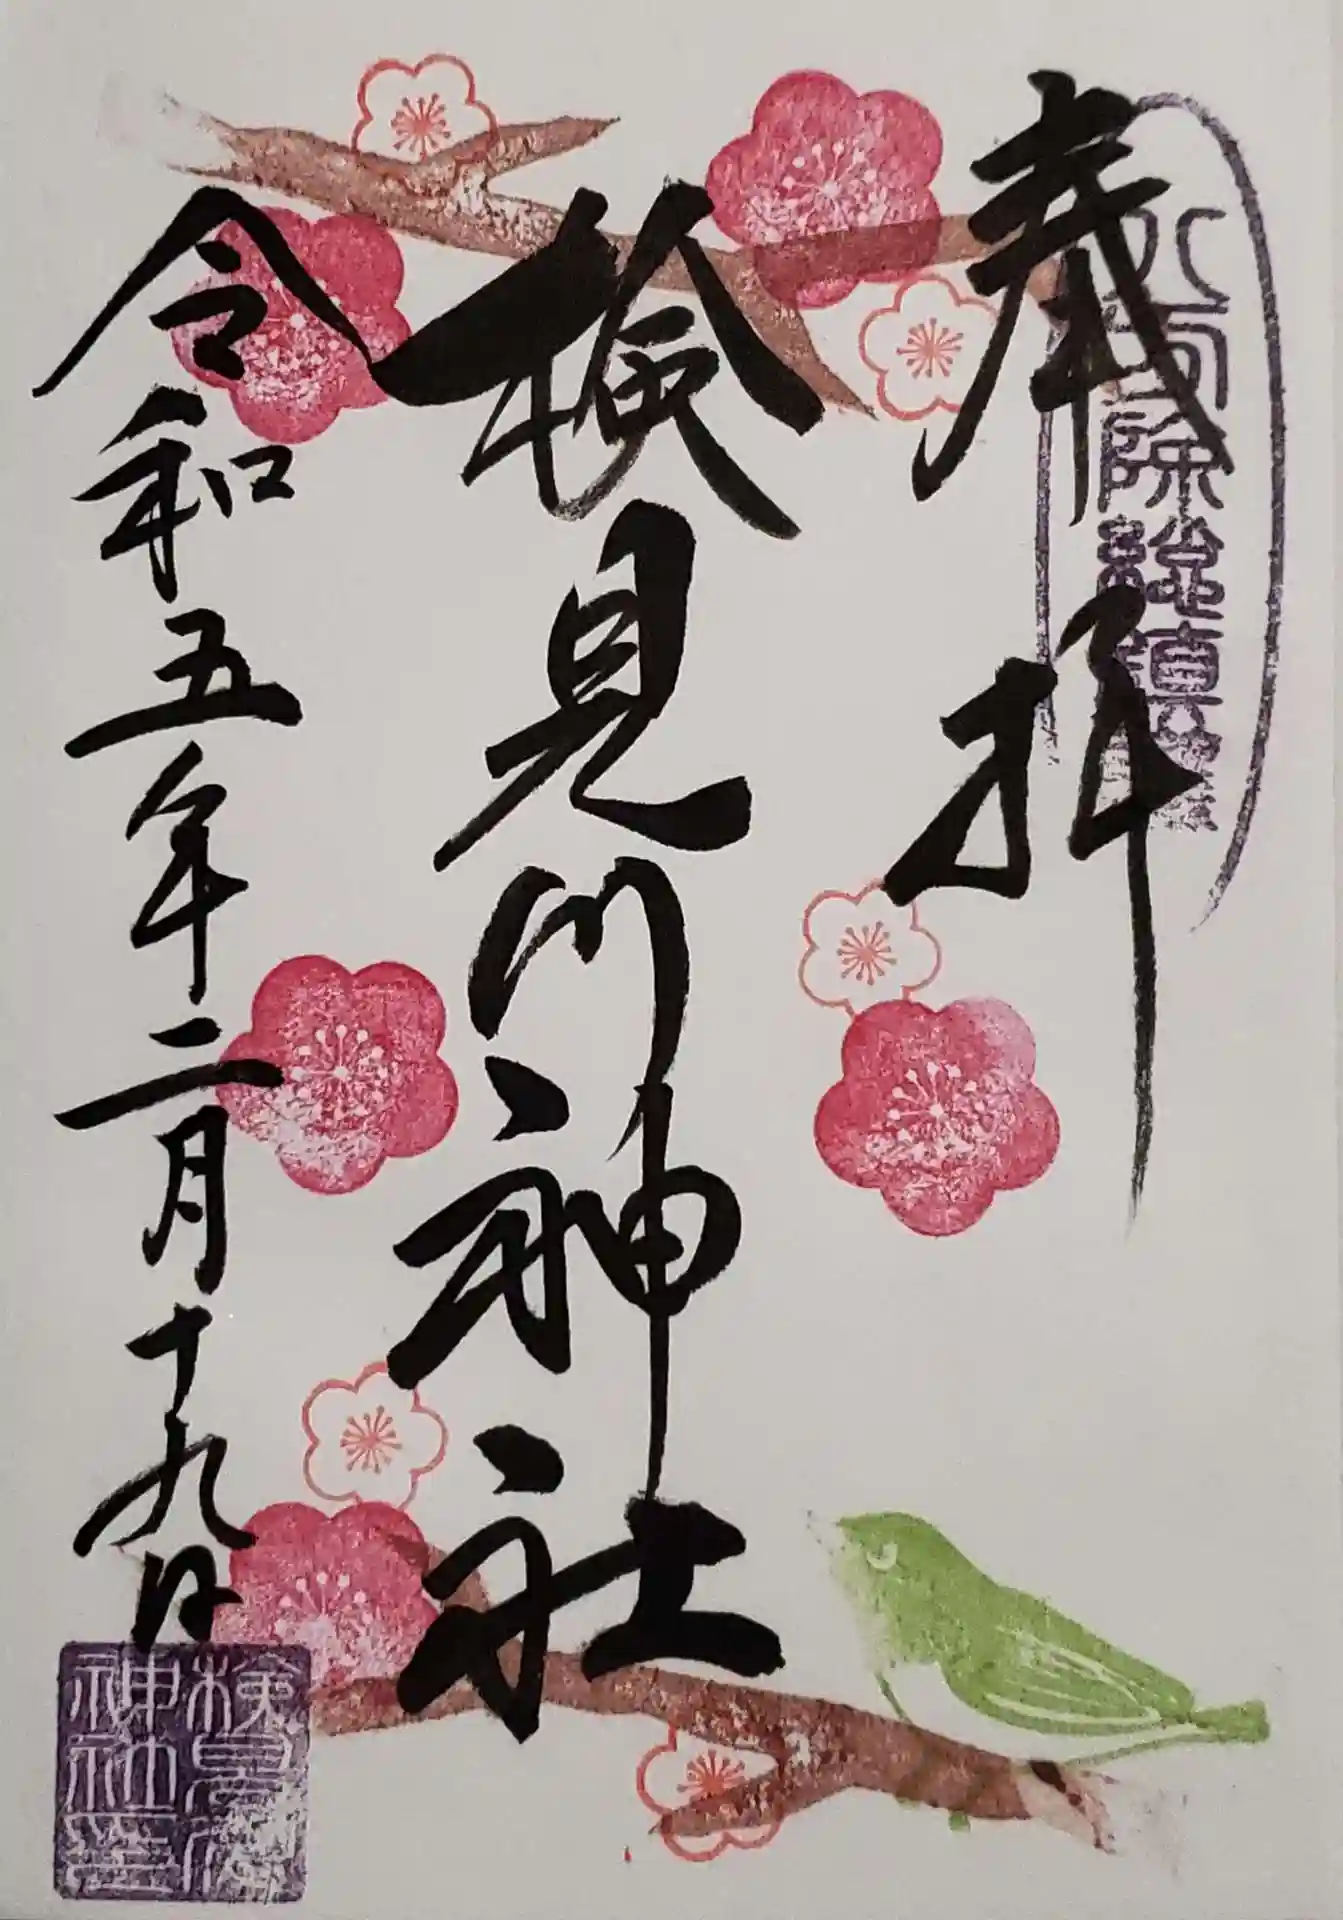 奉拝
八方除総鎮護
検見川神社
令和五年二月十九日
検見川
神社璽